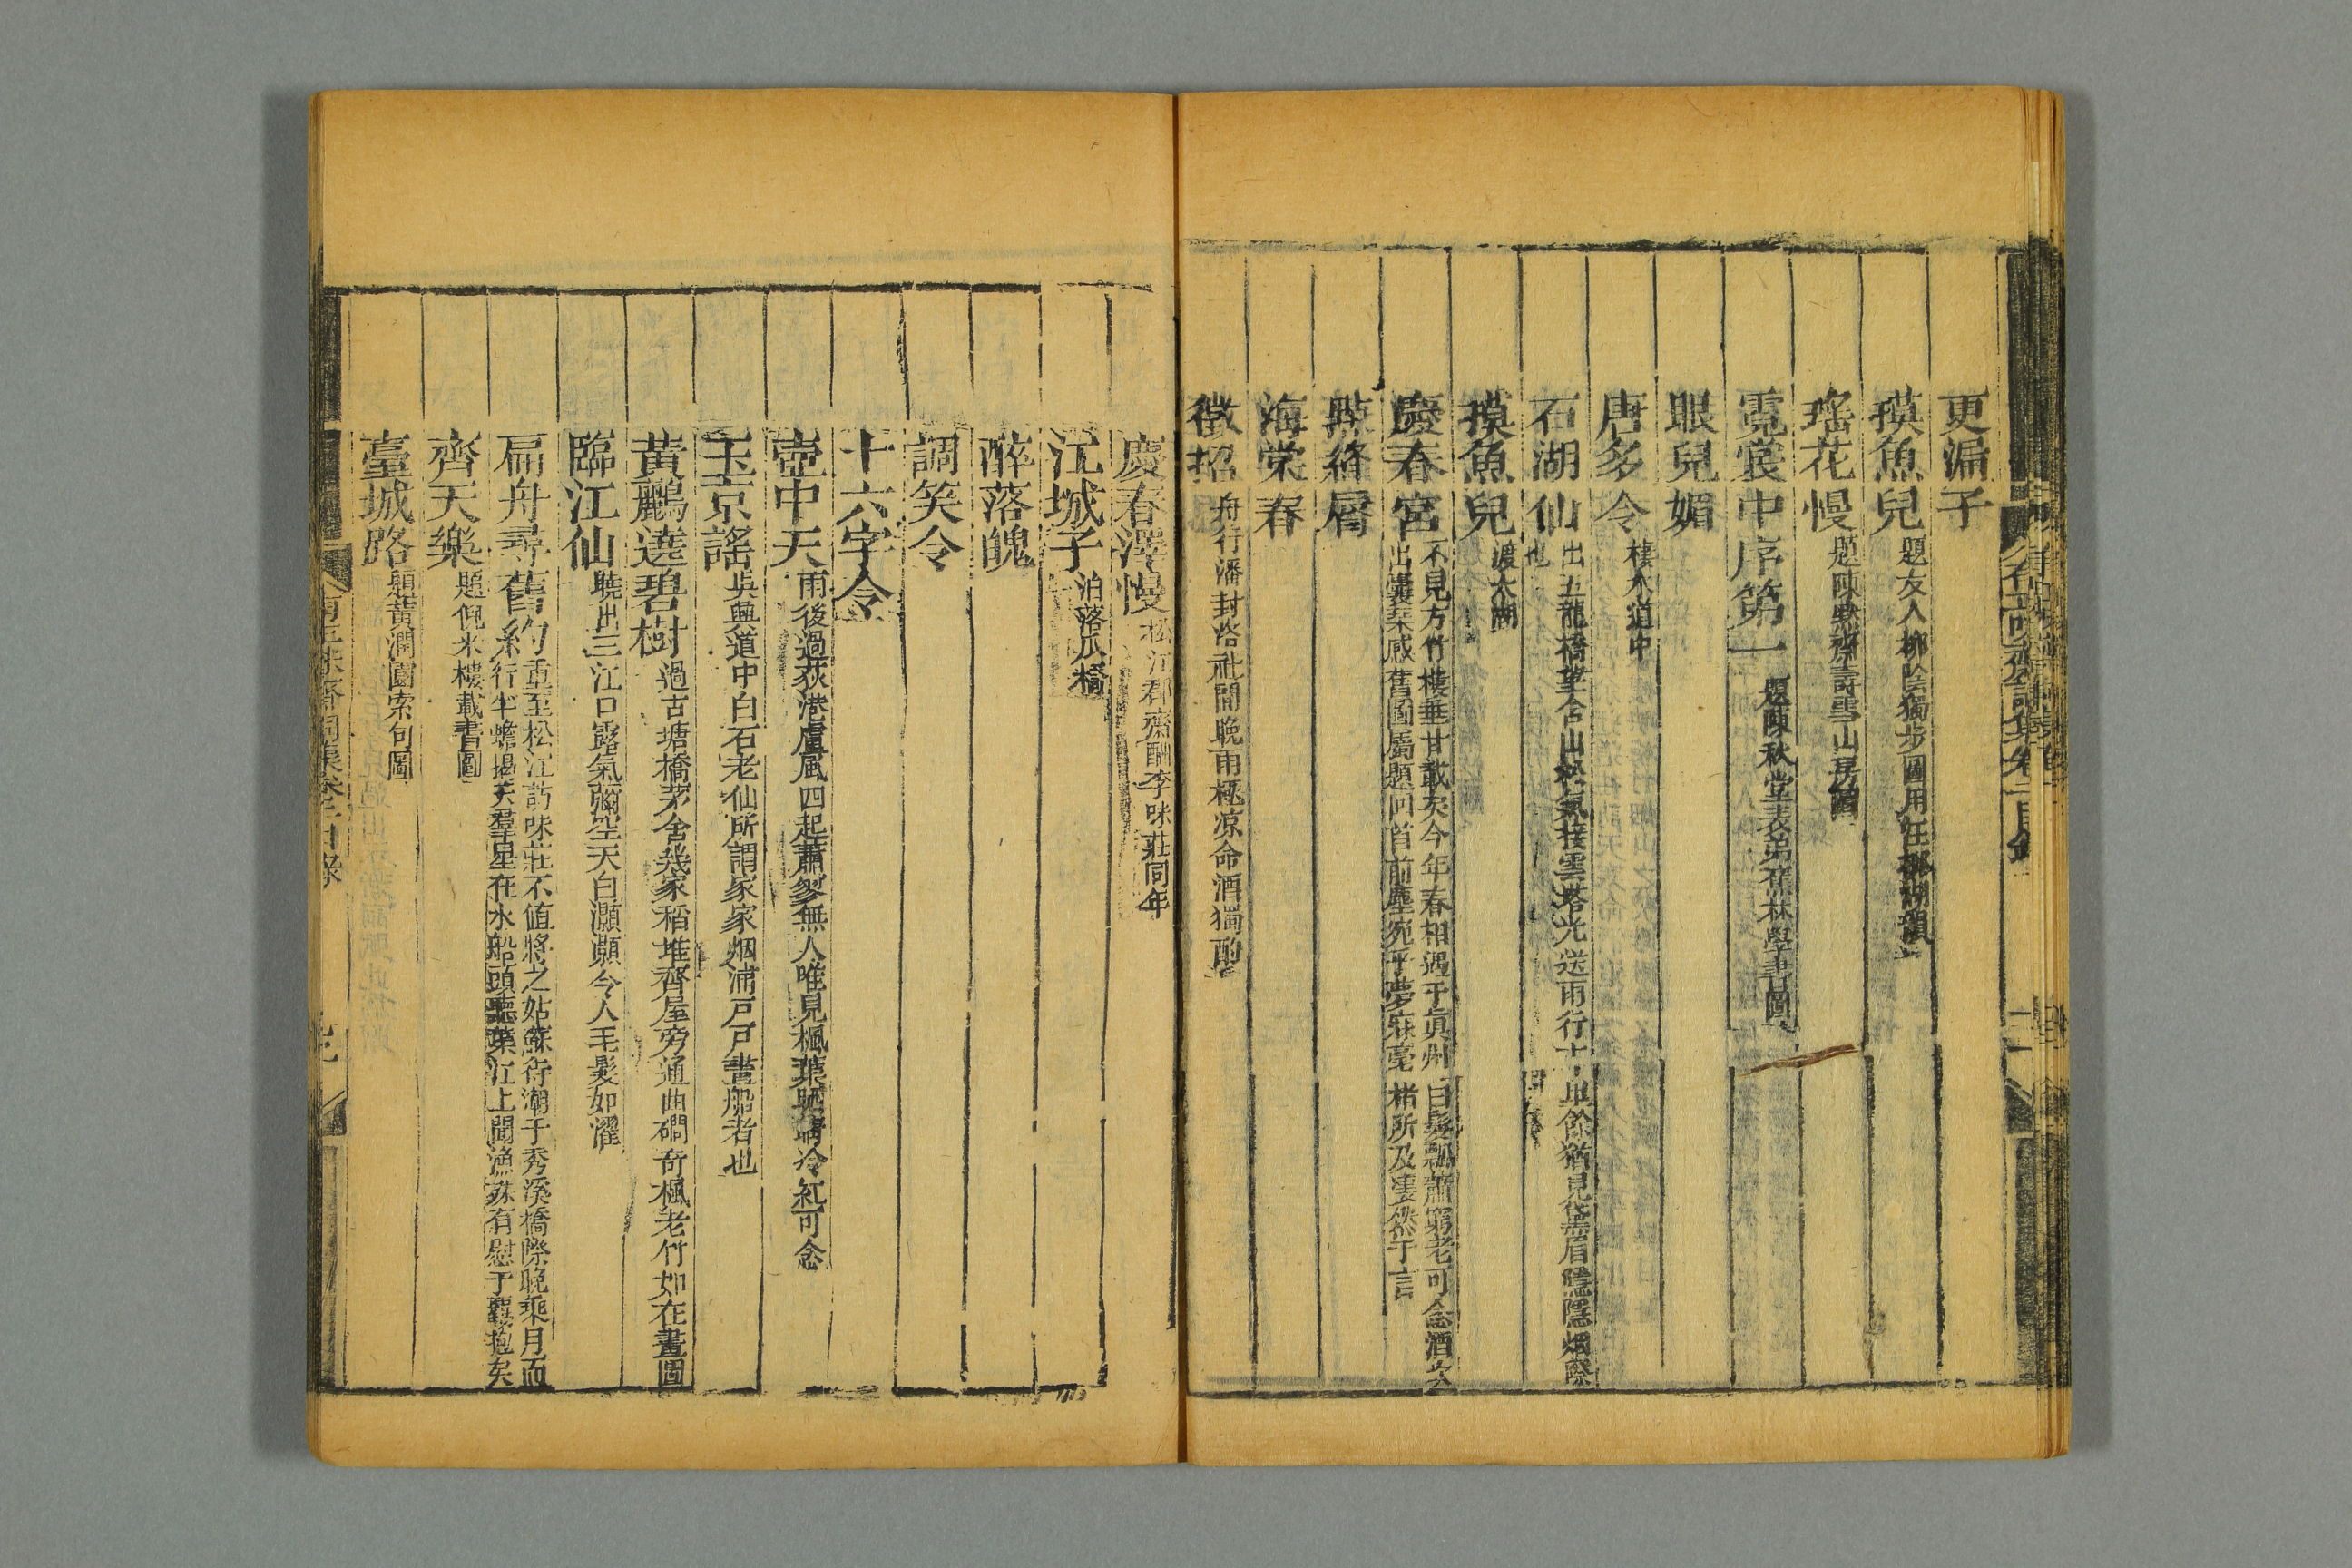 更漏子
摸魚兒 題友人柳陰獨步圖用任
瑤花慢 題陳默齋壽雪山房
霓裳中序第一 題陳秋堂 蕉林學書圖
眼兒媚
唐多令 棲水道中
石湖仙 出五龍橋望含山松氣接雲塔光送雨行十里餘猶見黛眉隱隱烟際
也
摸魚兒 渡太湖
慶春宮 不見方竹樓垂廿載矣今年春相遇于眞州白髮飄蕭窮老可念酒次
出囊琴感舊圖屬題回首前塵宛乎夢寐毫楮所及凄然于言
點絳脣
海棠春
徵招 舟行潘封洛祉間晚雨極凉命酒獨酌
慶春澤慢 松江郡齋酬李味莊同年
江城子 泊落瓜橋
醉落魄
調笑令
十六字令
壺中天 雨後過荻港盧風四起蕭寥無人唯見楓葉 冷紅可念
玉京謠 吳興道中白石老仙所謂家家烟浦戶戶畫船者也
黃鸝遶碧樹 過古塘橋茅舍幾家稻堆齊屋旁通曲磵奇楓老竹如在畫圖
臨江仙 曉出三江口露氣彌空天白灝灝令人毛髮如濯
扁舟尋舊約 重至松江訪味莊不値將之姑蘇待潮于秀溪橋際晚乘月而
行半蟾揭天羣星在水船頭聽葉江上聞漁殊有慰于羈抱矣
齊天樂 題倪米樓載書圖
臺城路 題黃潤園索句圖